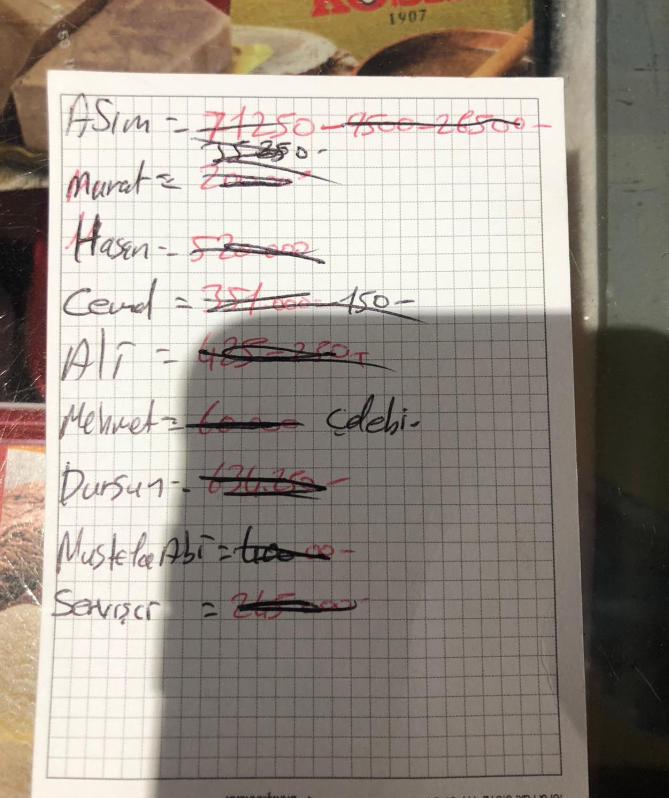 1907
Asım = 71250-9500-26500-
Murat =
Hasan - 520 000
Cevad = 351 000 - 150-
Ali = 425-250-
Mehmet = 60 000 Çelebi-
Dursun - 634.250-
Mustafa Abi =
Servisçi = 245